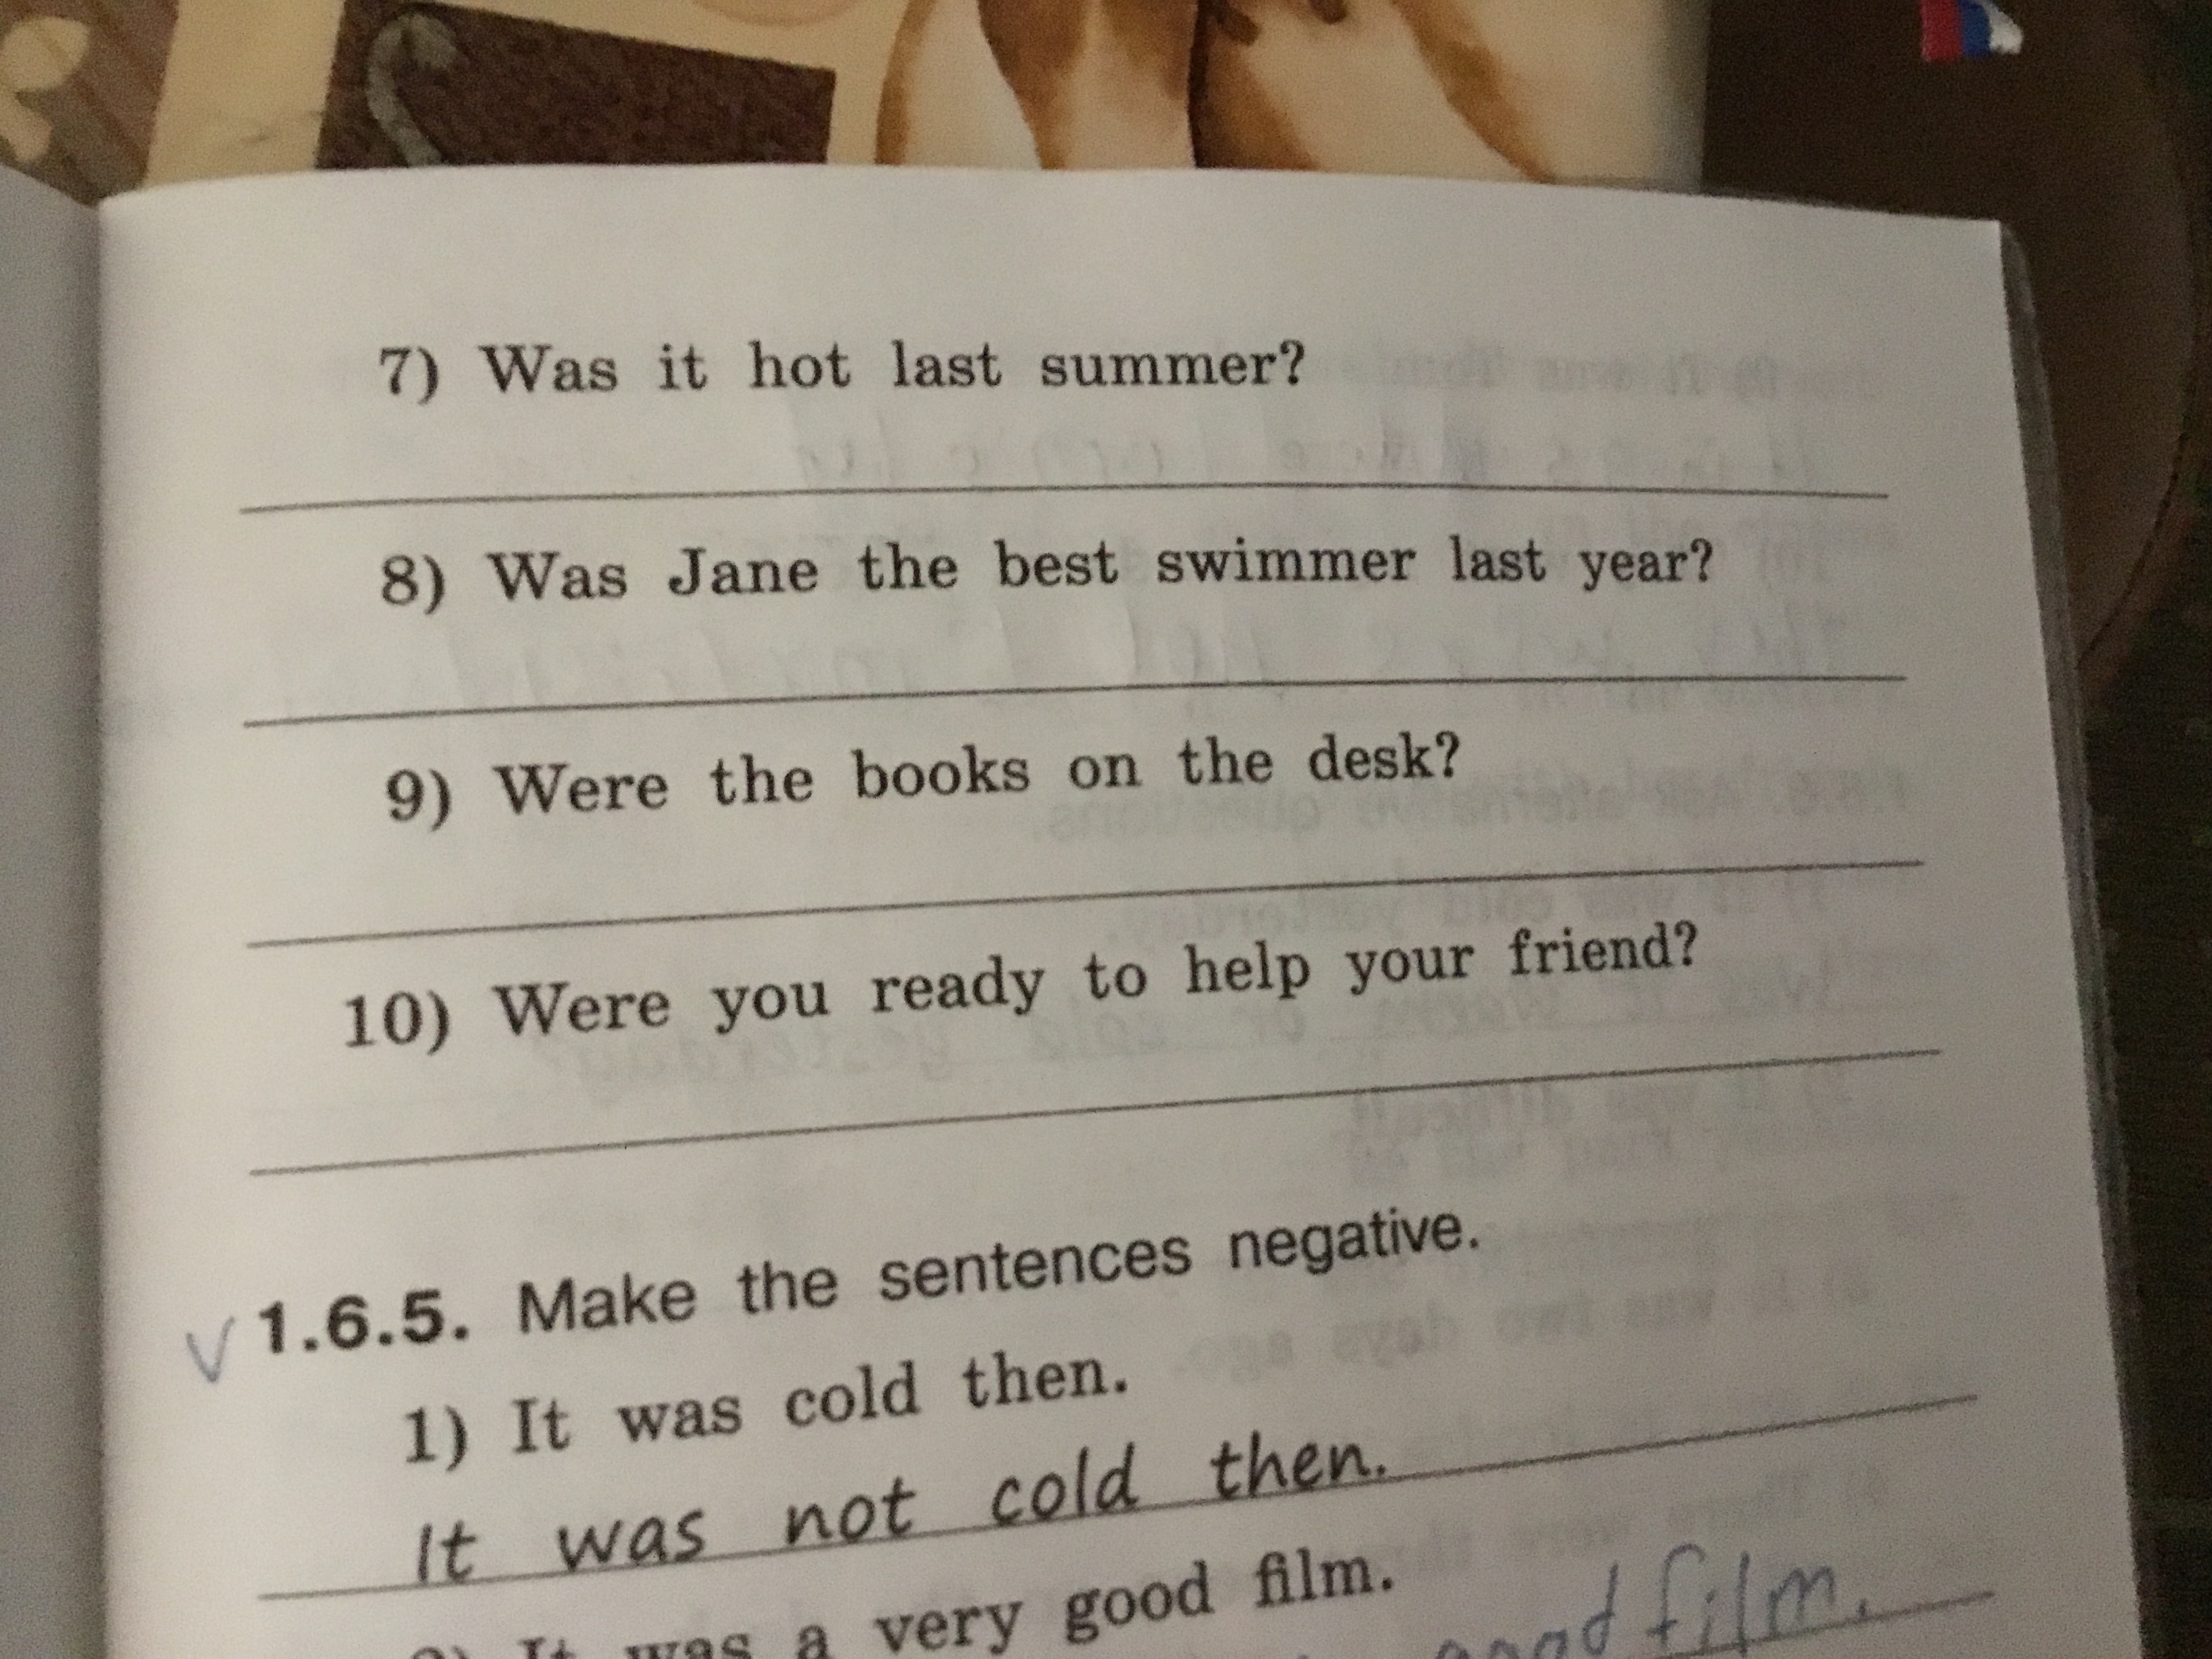 7) Was it hot last summer?
8) Was Jane the best swimmer last year?
9) Were the books on the desk?
10) Were you ready to help your friend?
V 1.6.5. Make the sentences negative.
1) It was cold then.
It was not cold then.
2) It was a very good film.
good film.